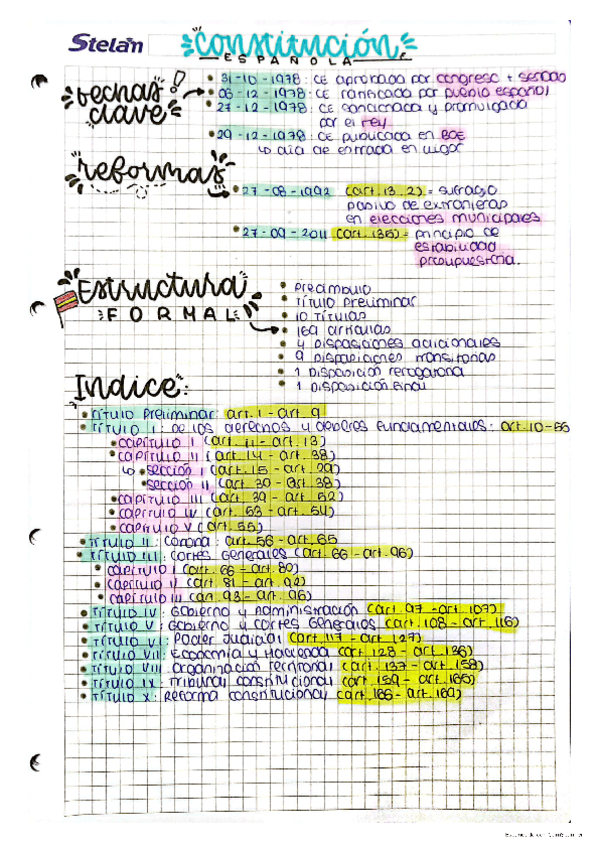 Stelan
Constitución
ESPAÑOLA
fechas clave!
31-10-1978: CE aprobada por congreso + senado
06-12-1978: CE ratificada por pueblo español
27-12-1978: CE sancionada y promulgada
por el rey
29-12-1978: CE publicada en BOE
↳ día de entrada en vigor
reformas
27-08-1992 (art. 13.2) = sufragio
pasivo de extranjeros
en elecciones municipales
27-09-2011 (art. 135) = principio de
estabilidad
presupuestaria.
Estructura
FORMAL
Preámbulo
Título Preliminar
10 Títulos
169 artículos
4 disposiciones adicionales
9 disposiciones transitorias
1 disposición derogatoria
1 disposición final
Indice:
Título Preliminar: art. 1 - art. 9
Título I: De los derechos y deberes fundamentales: art. 10-55
capítulo I (art. 11 - art. 13)
capítulo II (art. 14 - art. 38)
↳ sección I (art. 15 - art. 29)
sección II (art. 30 - art. 38)
capítulo III (art. 39 - art. 52)
capítulo IV (art. 53 - art. 54)
capítulo V (art. 55)
Título II: Corona: art. 56 - art. 65
Título III: Cortes Generales (art. 66 - art. 96)
capítulo I (art. 66 - art. 80)
capítulo II (art. 81 - art. 92)
capítulo III (art. 93 - art. 96)
Título IV: Gobierno y Administración (art. 97 - art. 107)
Título V: Gobierno y Cortes Generales (art. 108 - art. 116)
Título VI: Poder Judicial (art. 117 - art. 127)
Título VII: Economía y Hacienda (art. 128 - art. 136)
Título VIII: organización territorial (art. 137 - art. 158)
Título IX: Tribunal constitucional (art. 159 - art. 165)
Título X: Reforma constitucional (art. 166 - art. 169)